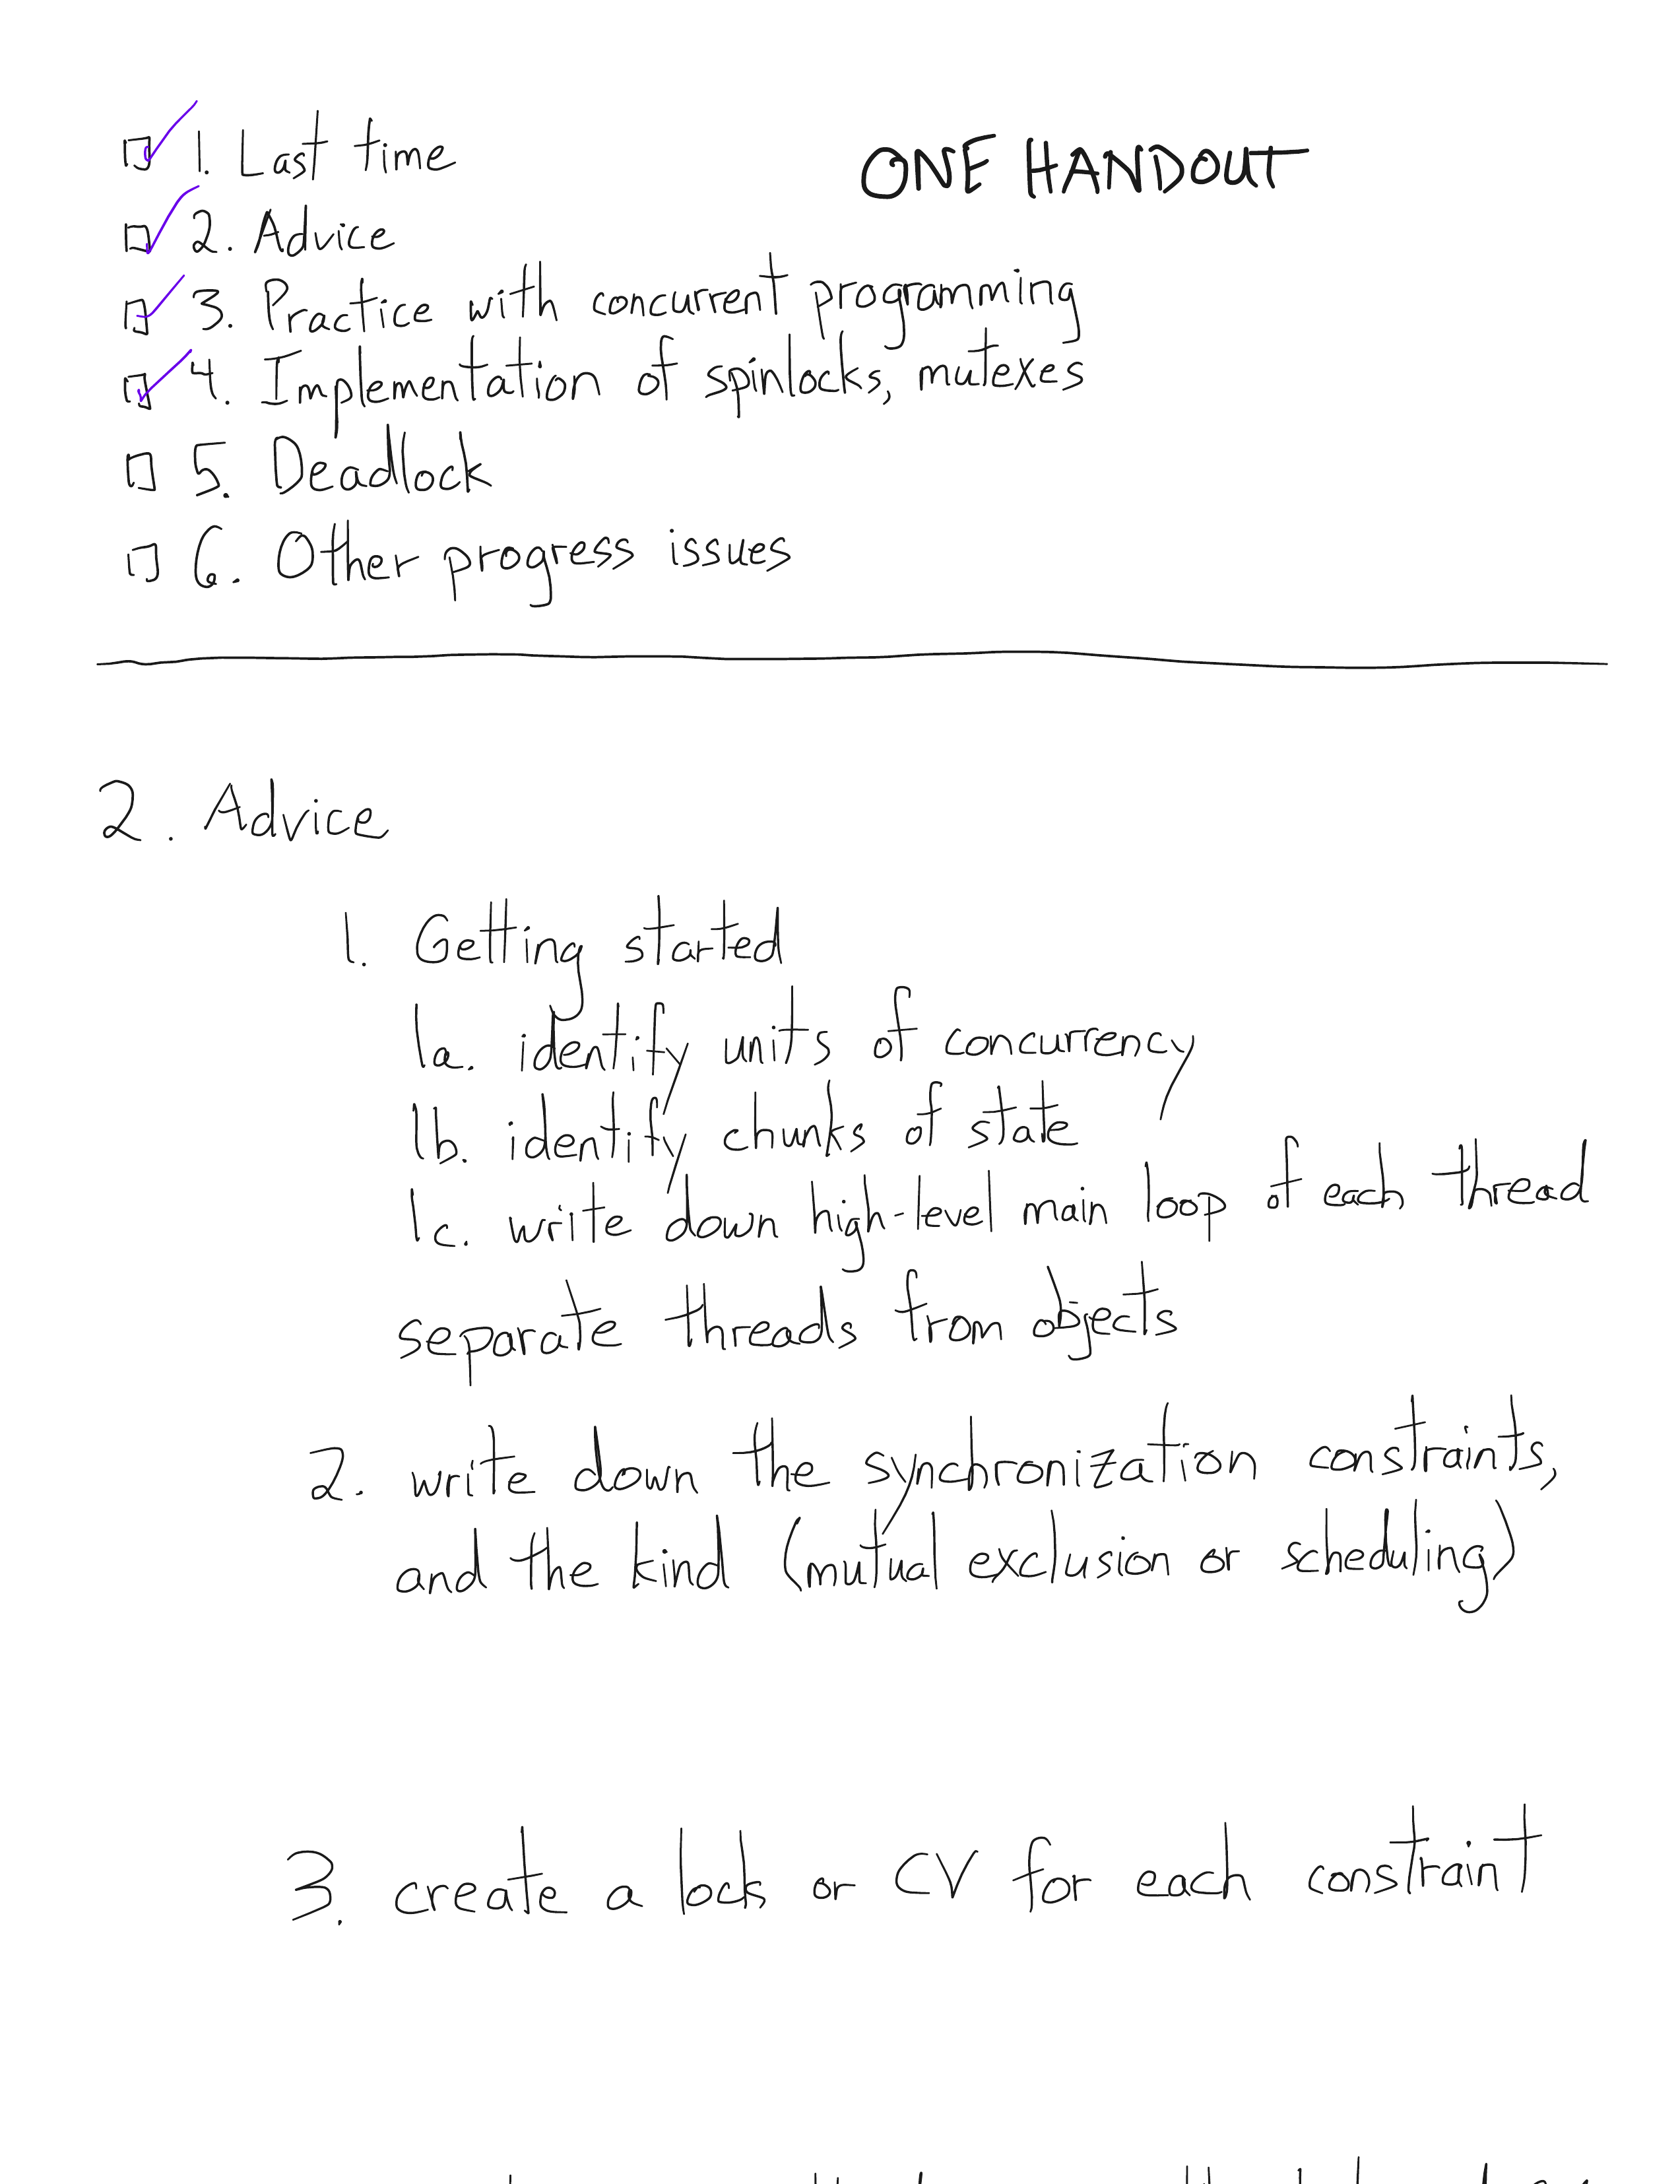 1. Last time
ONE HANDOUT
2. Advice
3. Practice with concurrent programming
4. Implementation of spinlocks, mutexes
5. Deadlock
6. Other progress issues
2. Advice
1. Getting started
1a. identify units of concurrency
1b. identify chunks of state
1c. write down high-level main loop of each thread
separate threads from objects
2. write down the synchronization constraints,
and the kind (mutual exclusion or scheduling)
3. create a lock or CV for each constraint